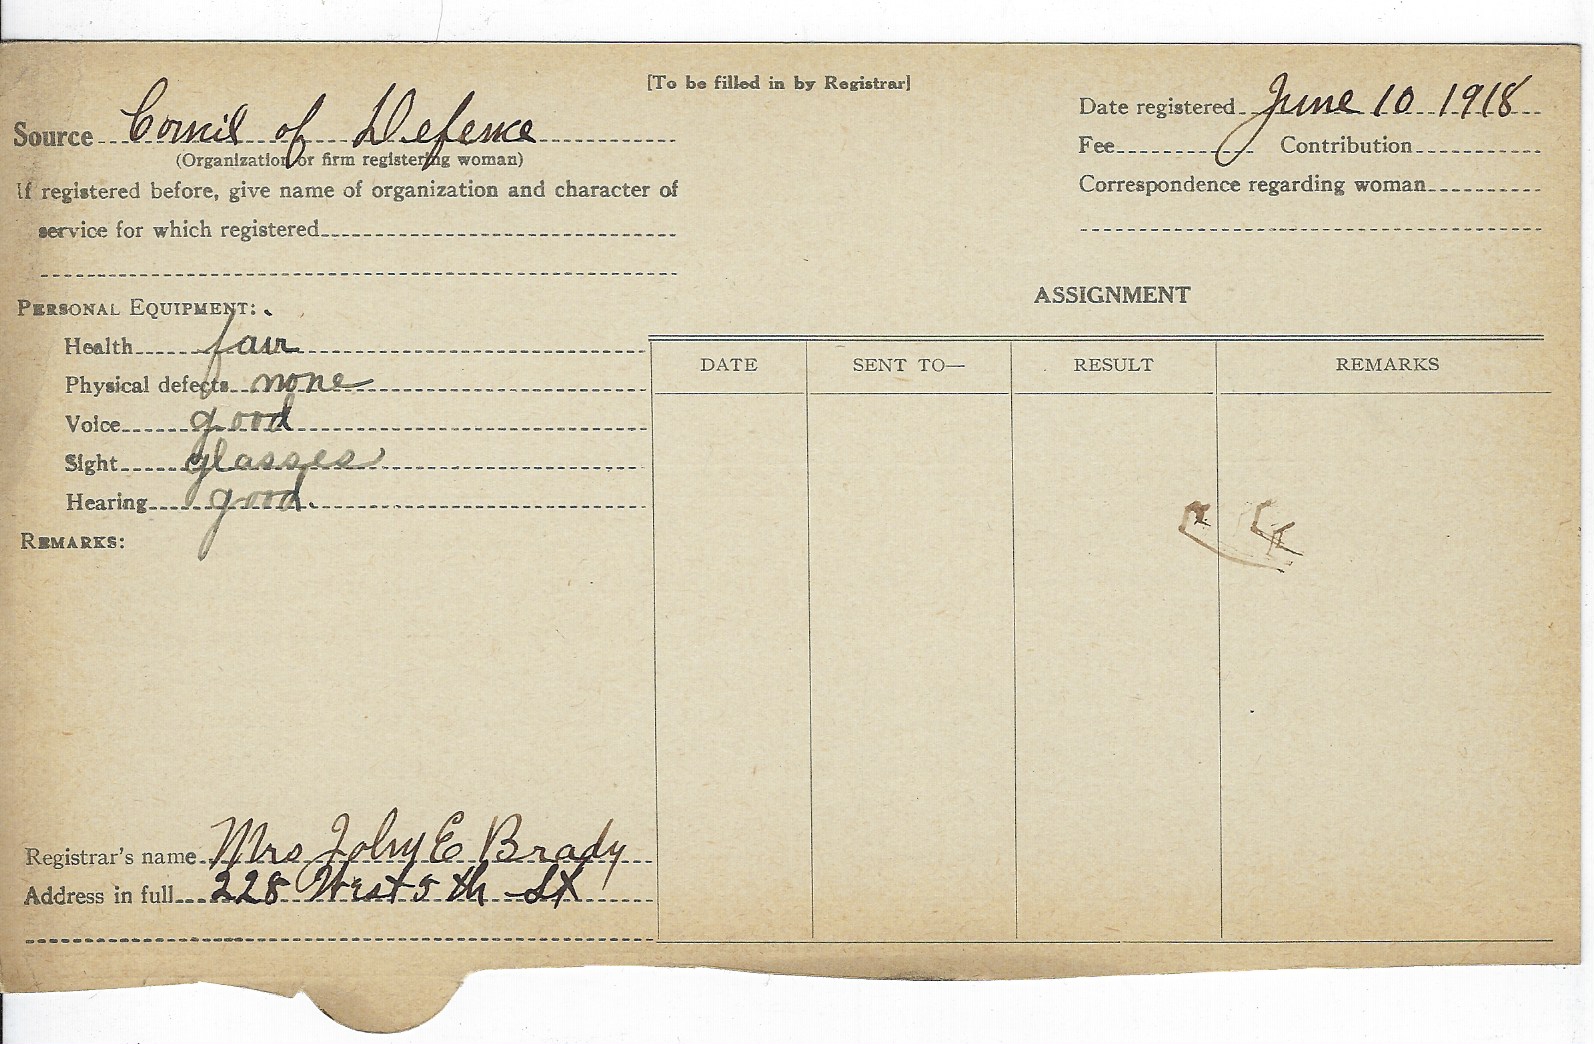 [To be filled in by Registrar]
Source Councill of Defence
(Organization or firm registering woman)
If registered before, give name of organization and character of
service for which registered
Date registered June 10 1918
Fee Contribution
Correspondence regarding woman
PERSONAL EQUIPMENT:
Health fair
Physical defects none
Voice good
Sight glasses
Hearing good.
REMARKS:
ASSIGNMENT
DATE SENT TO— RESULT REMARKS
Registrar's name Mrs John E Brady
Address in full 228 West 5th St